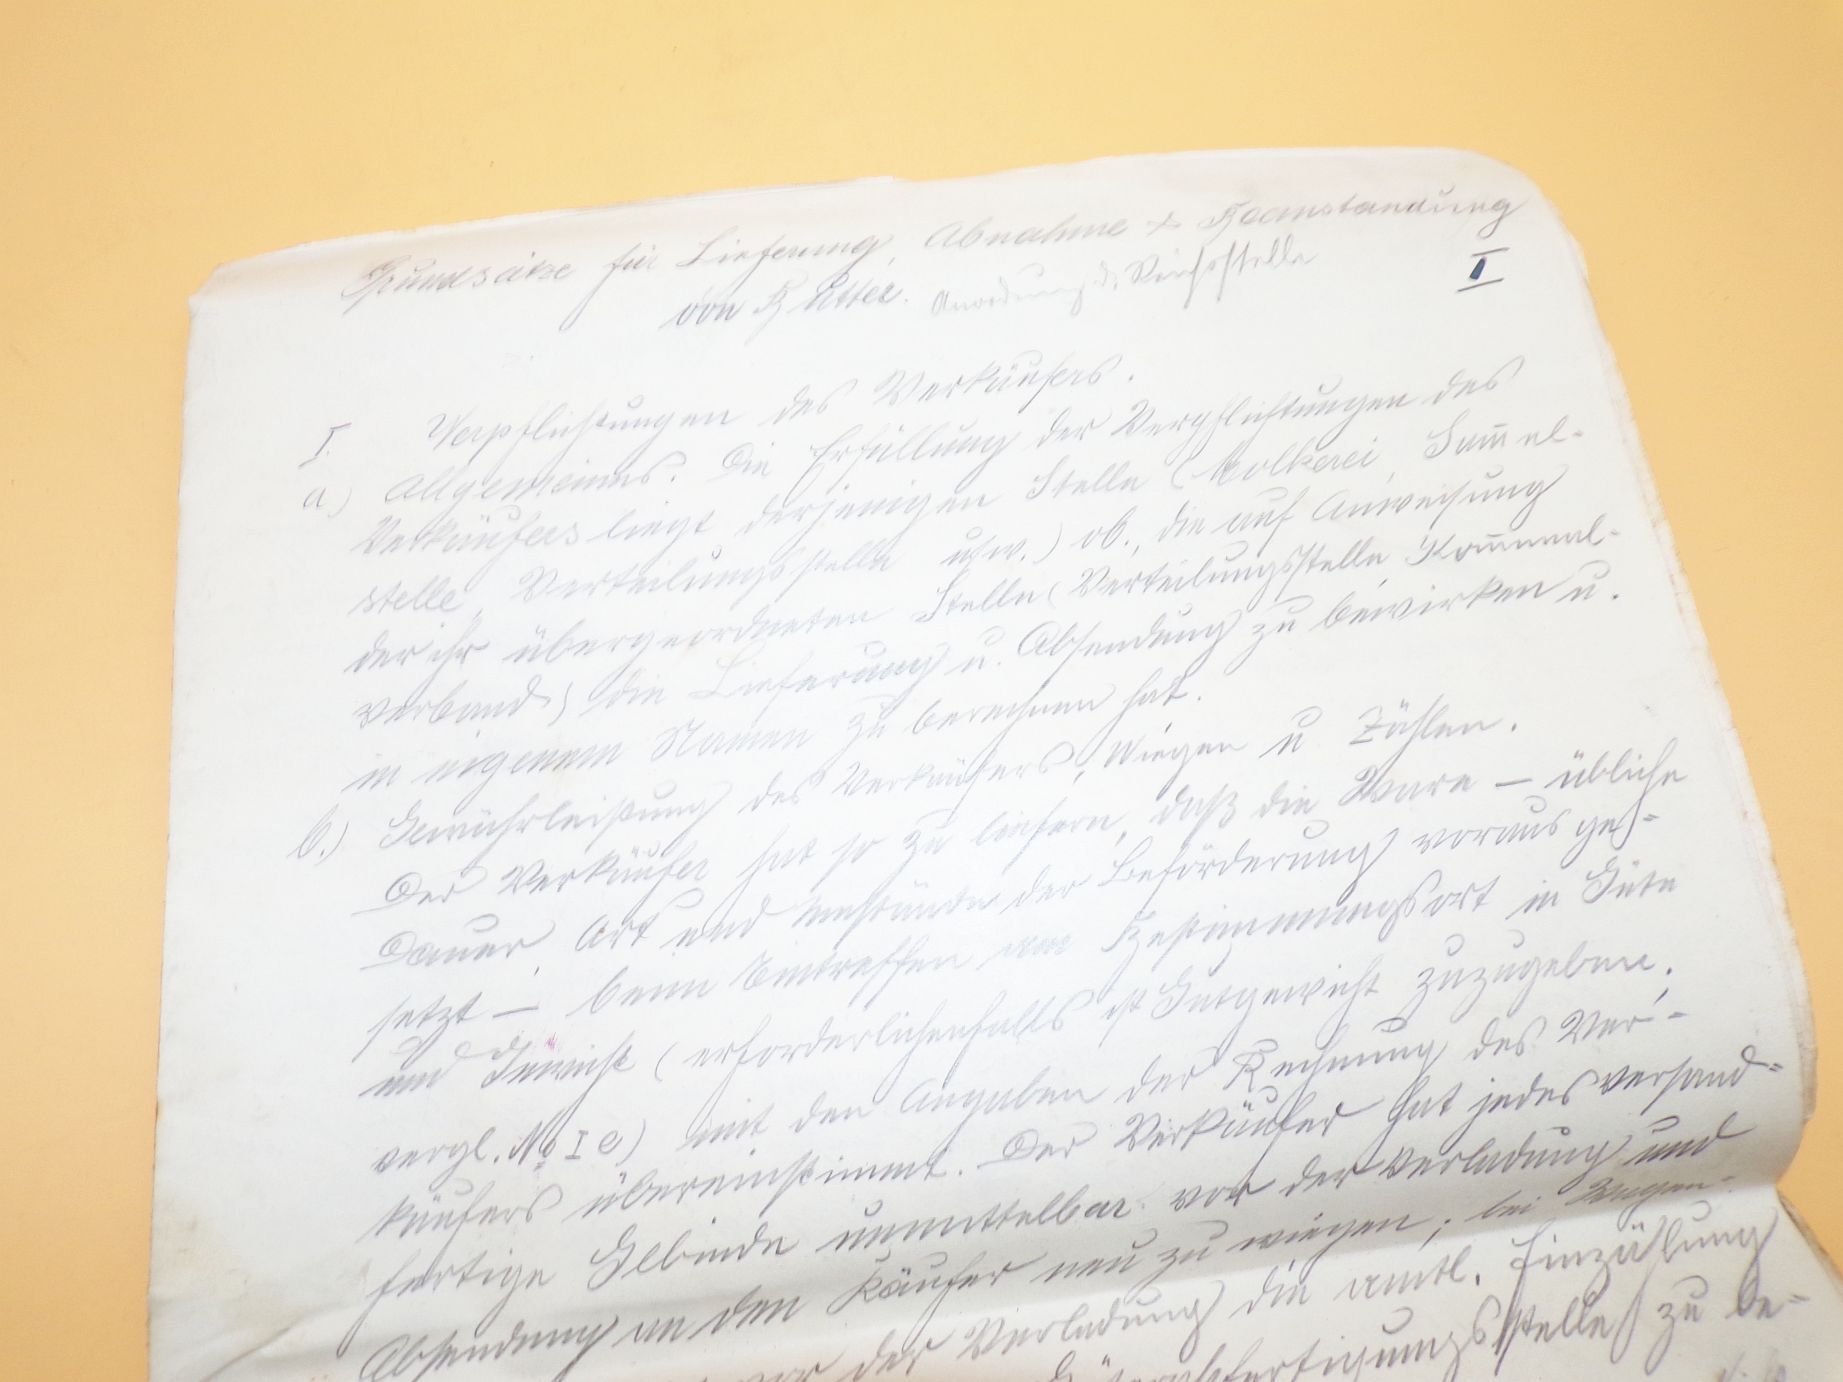 Grundsätze für Lieferung, Abnahme & Beanstandung
von Butter. Anordnung d. Reichsstelle
I
I. Verpflichtungen des Verkäufers.
a) Allgemeines. Die Erfüllung der Verpflichtungen des
Verkäufers liegt derjenigen Stelle (Molkerei, Sam̅el-
stelle, Verteilungsstelle usw.) ob, die auf Anweisung
der ihr übergeordneten Stelle (Verteilungsstelle Kom̅unal-
verband) die Lieferung u. Absendung zu bewirken u.
in eigenem Namen zu berechnen hat.
b.) Gewährleistung des Verkäufers, Wiegen u Zählen.
Der Verkäufer hat so zu liefern, daß die Ware – übliche
Dauer, Art und Umstände der Beförderung vorausge-
setzt – beim Eintreffen am Bestimmungsort in Güte
und Gewicht (erforderlichenfalls ist Gutgewicht zuzugeben,
vergl. No I e) mit den Angaben der Rechnung des Ver-
käufers übereinstimmt. Der Verkäufer hat jedes versand-
fertige Gebinde unmittelbar vor der Verladung und
Absendung an den Käufer neu zu wiegen; bei Wagen-
vor der Verladung die amtl. Einzählung
zu be-